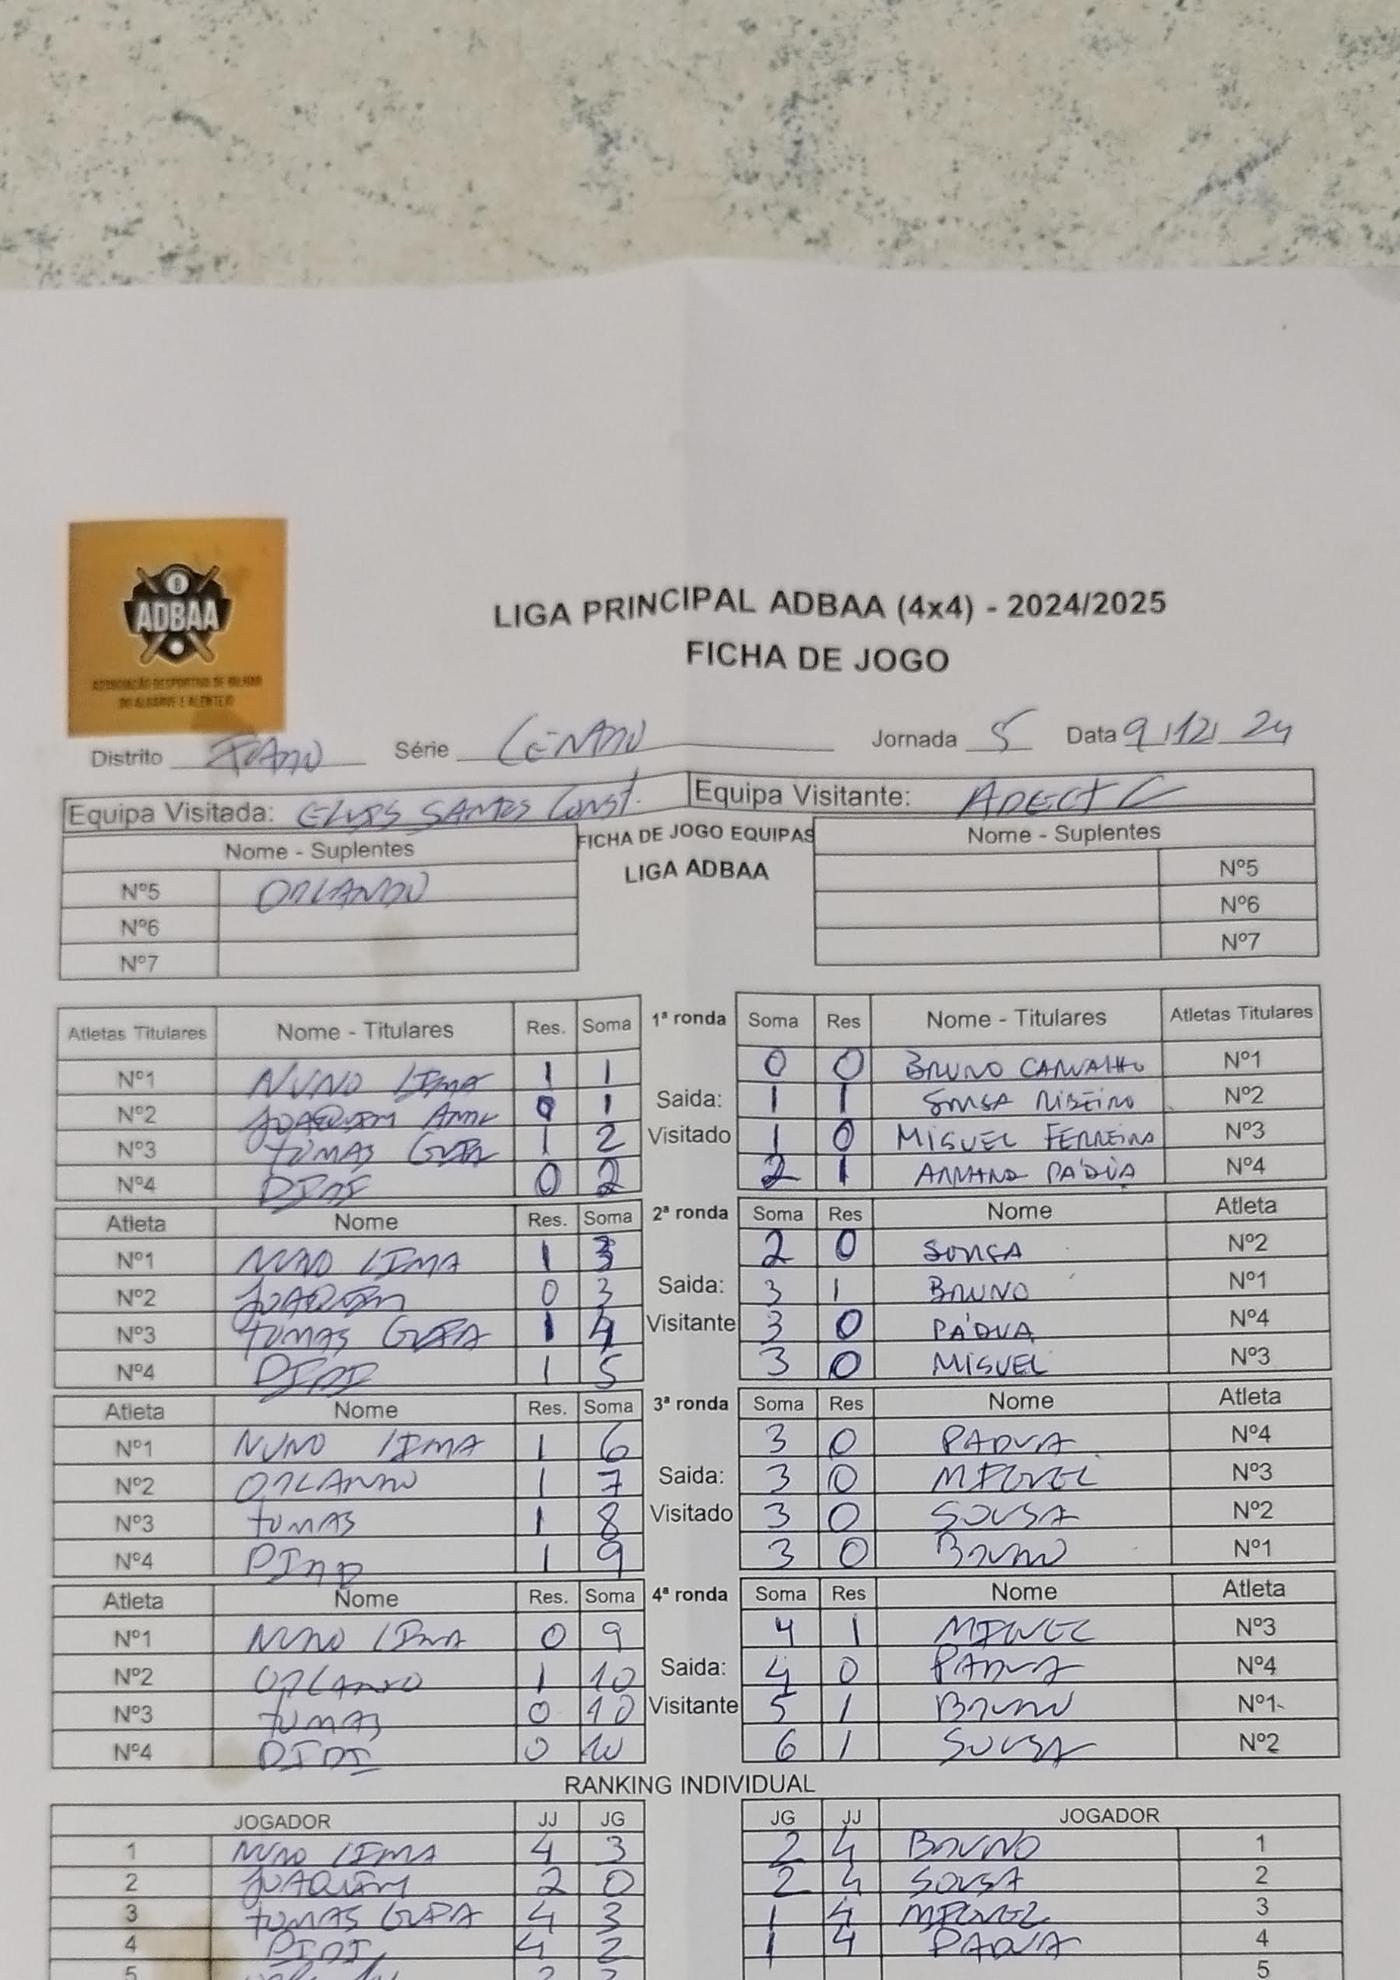 8
ADBAA
ASSOCIAÇÃO DESPORTIVA DE BILHAR
DO ALGARVE E ALENTEJO
LIGA PRINCIPAL ADBAA (4x4) - 2024/2025
FICHA DE JOGO
Distrito Série Jornada 5 Data 9/12/24
Equipa Visitada: SANTOS CONST. Equipa Visitante: ADECT C
Nome - Suplentes FICHA DE JOGO EQUIPAS Nome - Suplentes
LIGA ADBAA
Nº5 ORLANDO Nº5
Nº6 Nº6
Nº7 Nº7
Atletas Titulares Nome - Titulares Res. Soma 1ª ronda Soma Res Nome - Titulares Atletas Titulares
Nº1 NUNO LIMA 1 1 0 0 BRUNO CARVALHO Nº1
Nº2 JOAQUIM 0 1 Saida: 1 1 SOUSA RIBEIRO Nº2
Nº3 TOMAS 1 2 Visitado 1 0 MIGUEL FERREIRA Nº3
Nº4 DIDI 0 2 2 1 PÁDUA Nº4
Atleta Nome Res. Soma 2ª ronda Soma Res Nome Atleta
Nº1 NUNO LIMA 1 3 2 0 SOUSA Nº2
Nº2 JOAQUIM 0 3 Saida: 3 1 BRUNO Nº1
Nº3 TOMAS 1 4 Visitante 3 0 PÁDUA Nº4
Nº4 DIDI 1 5 3 0 MIGUEL Nº3
Atleta Nome Res. Soma 3ª ronda Soma Res Nome Atleta
Nº1 NUNO LIMA 1 6 3 0 PADUA Nº4
Nº2 ORLANDO 1 7 Saida: 3 0 MIGUEL Nº3
Nº3 TOMAS 1 8 Visitado 3 0 SOUSA Nº2
Nº4 1 9 3 0 BRUNO Nº1
Atleta Nome Res. Soma 4ª ronda Soma Res Nome Atleta
Nº1 NUNO LIMA 0 9 4 1 MIGUEL Nº3
Nº2 ORLANDO 1 10 Saida: 4 0 PADUA Nº4
Nº3 TOMAS 0 10 Visitante 5 1 BRUNO Nº1
Nº4 DIDI 0 10 6 1 SOUSA Nº2
RANKING INDIVIDUAL
JOGADOR JJ JG JG JJ JOGADOR
1 NUNO LIMA 4 3 2 4 BRUNO 1
2 JOAQUIM 2 0 2 4 SOUSA 2
3 TOMAS 4 3 1 4 MIGUEL 3
4 DIDI 4 2 1 4 PADUA 4
5 2 2 5